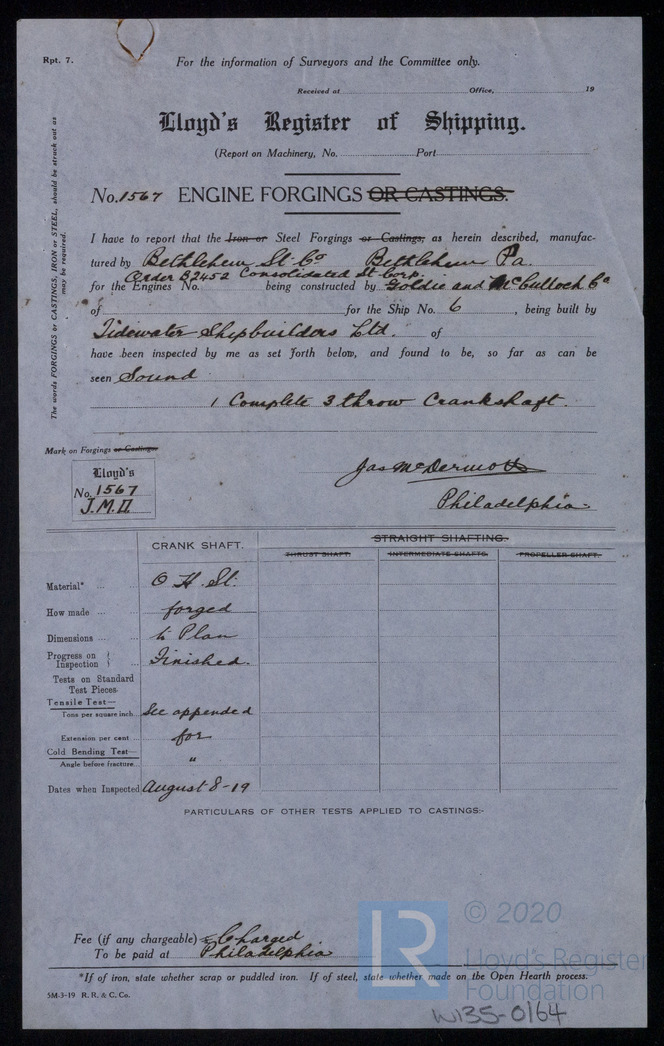 Rpt. 7.
For the information of Surveyors and the Committee only.
Received at Office, 19
Lloyd's Register of Shipping.
(Report on Machinery, No. Port
No. 1567 ENGINE FORGINGS OR CASTINGS.
The words FORGINGS or CASTINGS, IRON or STEEL, should be struck out as may be required.
I have to report that the Iron or Steel Forgings or Castings, as herein described, manufac-
tured by Bethlehem St. Co Bethlehem Pa.
Order 32452 Consolidated St. Corp.
for the Engines No. being constructed by Goldie and McCulloch Co
of for the Ship No. 6, being built by
Tidewater Shipbuilders Ltd. of
have been inspected by me as set forth below, and found to be, so far as can be
seen Sound
1 Complete 3 throw Crankshaft.
Mark on Forgings or Castings
Lloyd's
No. 1567
J.M.D.
Jas McDermott
Philadelphia
CRANK SHAFT.
STRAIGHT SHAFTING.
THRUST SHAFT. INTERMEDIATE SHAFTS. PROPELLER SHAFT.
Material* ... O H. St.
How made ... forged
Dimensions ... to Plan
Progress on Inspection } ... Finished.
Tests on Standard
Test Pieces
Tensile Test—
Tons per square inch... See appended
Extension per cent... for
Cold Bending Test—
Angle before fracture... "
Dates when Inspected August 8-19
PARTICULARS OF OTHER TESTS APPLIED TO CASTINGS:-
Fee (if any chargeable) Charged
To be paid at Philadelphia
*If of iron, state whether scrap or puddled iron. If of steel, state whether made on the Open Hearth process.
5M-3-19 R. R. & C. Co.
© 2020
LR
Lloyd's Register
Foundation
W135-0164